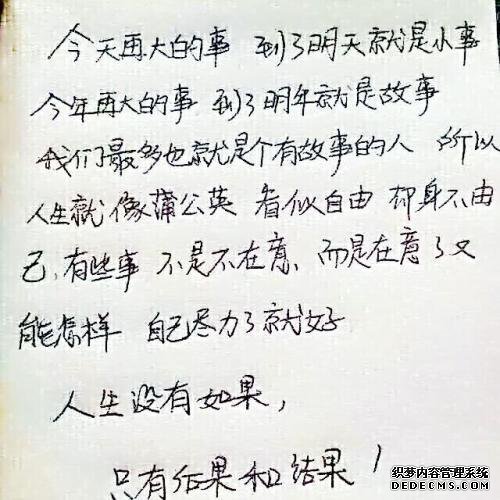 今天再大的事 到了明天就是小事
今年再大的事 到了明年就是故事
我们最多也就是个有故事的人 所以
人生就像蒲公英 看似自由 却身不由
己.有些事 不是不在意、而是在意了又
能怎样 自己尽力了就好
人生没有如果,
只有后果和结果!
织梦内容管理系统
DEDECMS.COM